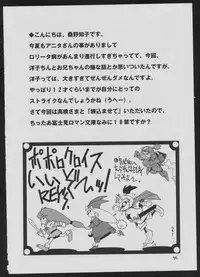 ●こんにちは、桑野知子です。
今夏もアニタさんの事がありまして
ロリータ病があんまし進行しすぎちゃってて、今回、
洋子ちんとお兄ちゃんの嫌な話とか思いついたんですが、
洋子じゃ、大きすぎてぜんぜんダメなんですよ。
やっぱり12才ぐらいまでが自分にとっての
ストライクなんでしょうかね（うへー）。
さて今回は高橋さまと「締込ませて」いただいたので、
ちったあ富士見ロマン文庫なみに18禁ですか？
ポポロクロイス
いいぞーッ!